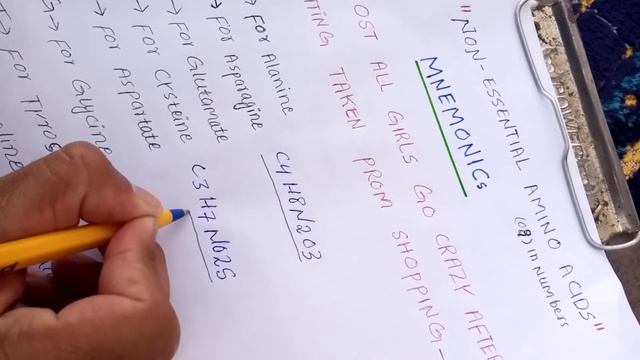 "NON-ESSENTIAL AMINO ACIDS"
(09) in Numbers
MNEMONICS
OST ALL GIRLS GO CRAZY AFTE
TING TAKEN PROM SHOPPING-
→ For Alanine
→ For Asparagine C4H8N2O3
→ For Glutamate
→ For Cysteine C3H7NO2S
→ For Aspartate
G→ For Glycine
→ For Tyros
line